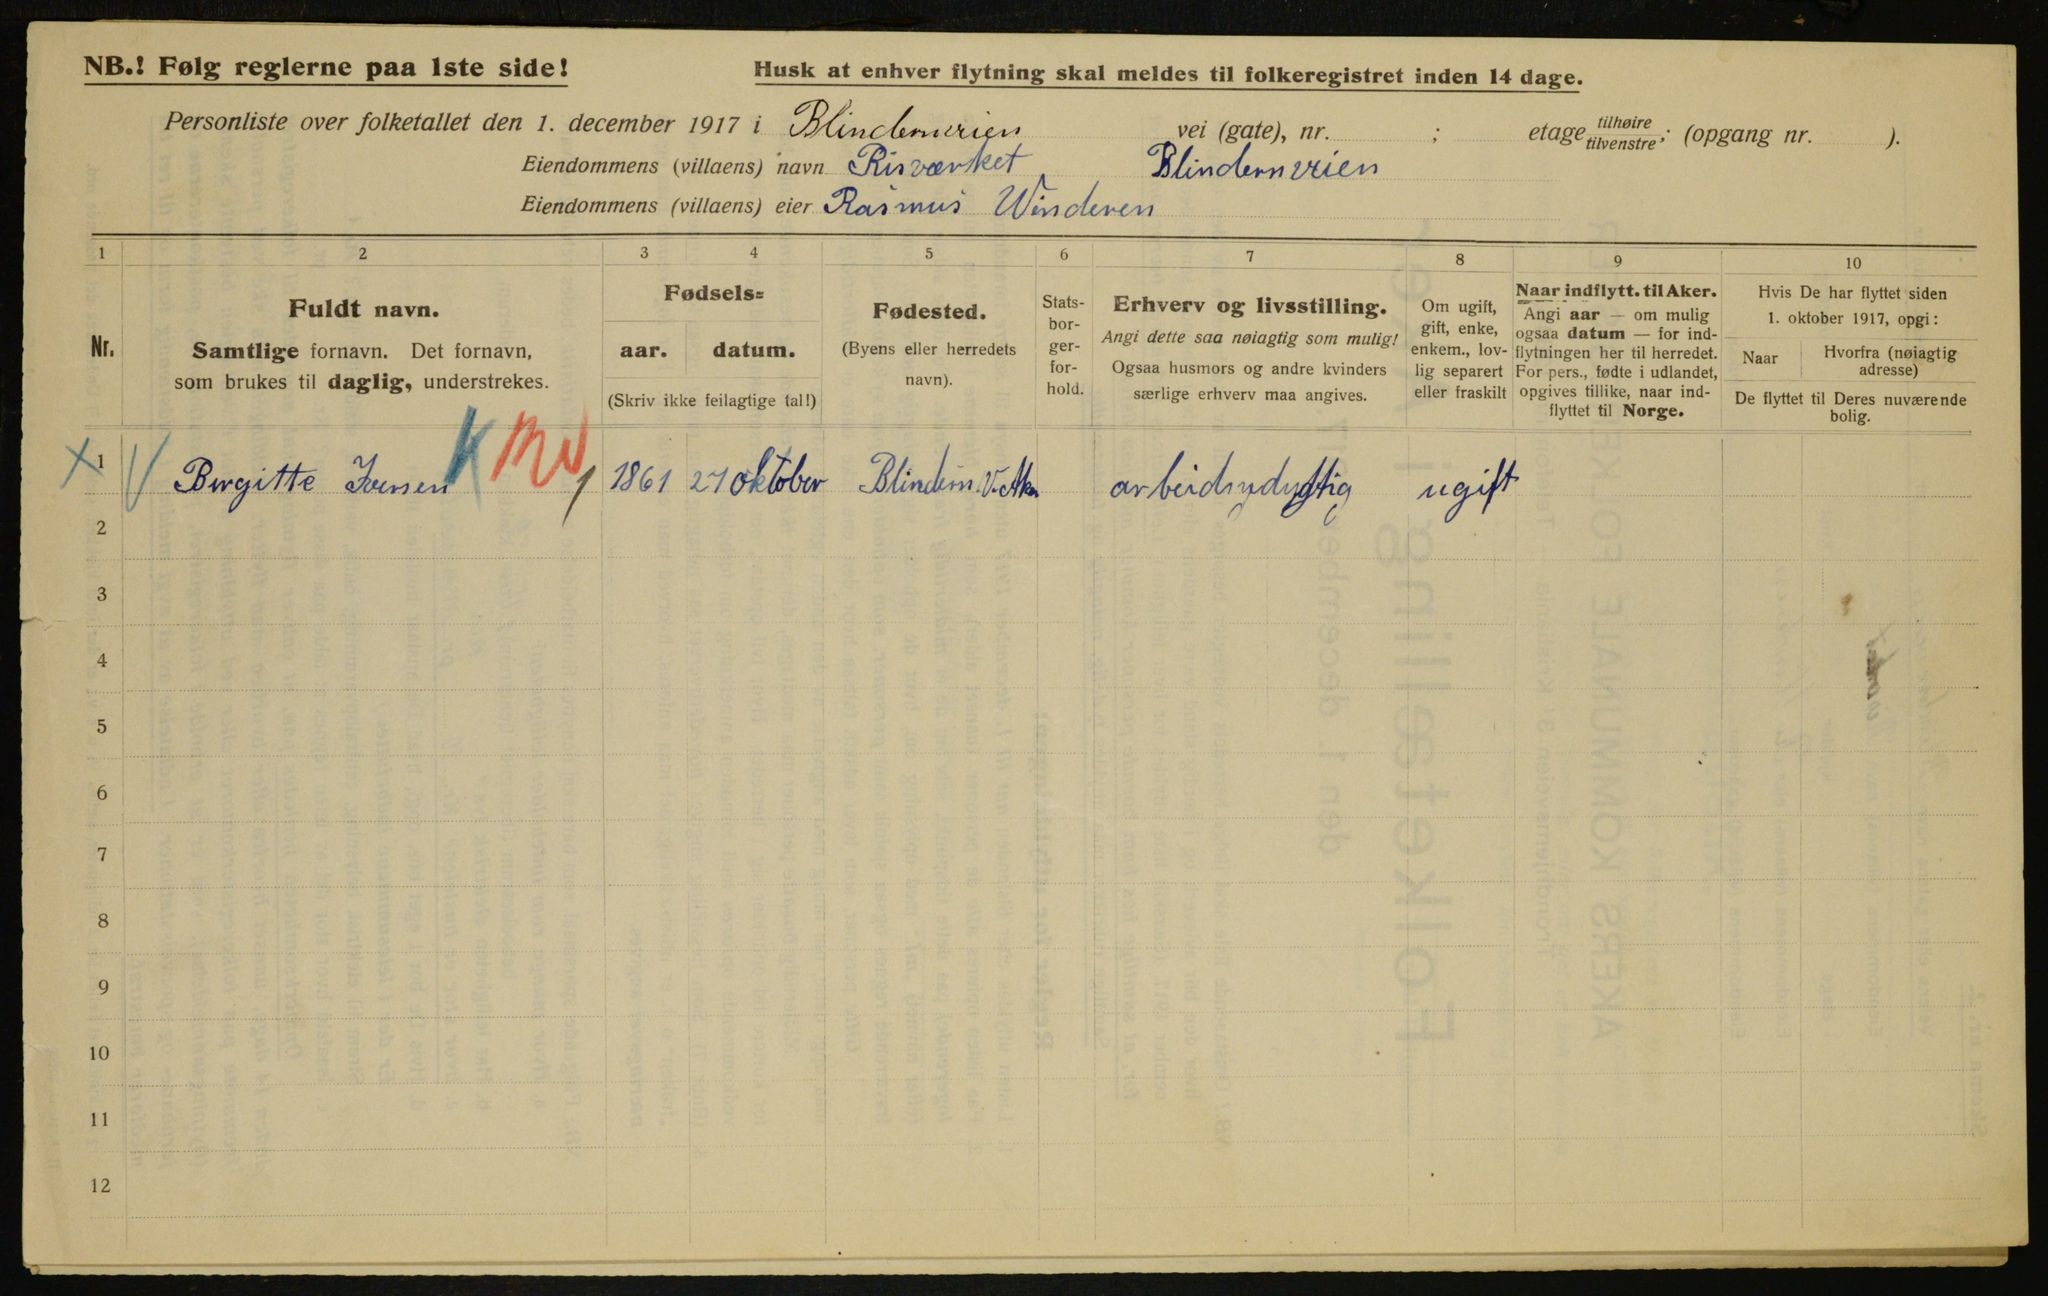 NB.! Følg reglerne paa 1ste side!
Husk at enhver flytning skal meldes til folkeregistret inden 14 dage.
Personliste over folketallet den 1. december 1917 i Blindernveien vei (gate), nr. ; etage tilhøire tilvenstre; (opgang nr. ).
Eiendommens (villaens) navn Risværket Blindernveien
Eiendommens (villaens) eier Rasmus Winderen
1 2 3 4 5 6 7 8 9 10
Nr.
Fuldt navn.
Samtlige fornavn. Det fornavn,
som brukes til daglig, understrekes.
Fødsels=
aar. datum.
(Skriv ikke feilagtige tal!)
Fødested.
(Byens eller herredets
navn).
Stats-
bor-
ger-
for-
hold.
Erhverv og livsstilling.
Angi dette saa nøiagtig som mulig!
Ogsaa husmors og andre kvinders
særlige erhverv maa angives.
Om ugift,
gift, enke,
enkem., lov-
lig separert
eller fraskilt
Naar indflytt. til Aker.
Angi aar — om mulig
ogsaa datum — for ind-
flytningen her til herredet.
For pers., fødte i udlandet,
opgives tillike, naar ind-
flyttet til Norge.
Hvis De har flyttet siden
1. oktober 1917, opgi:
Naar
Hvorfra (nøiagtig
adresse)
De flyttet til Deres nuværende
bolig.
1 Birgitte Iversen K 1 1861 27 oktober Blindern V. Aker ugift
2
3
4
5
6
7
8
9
10
11
12